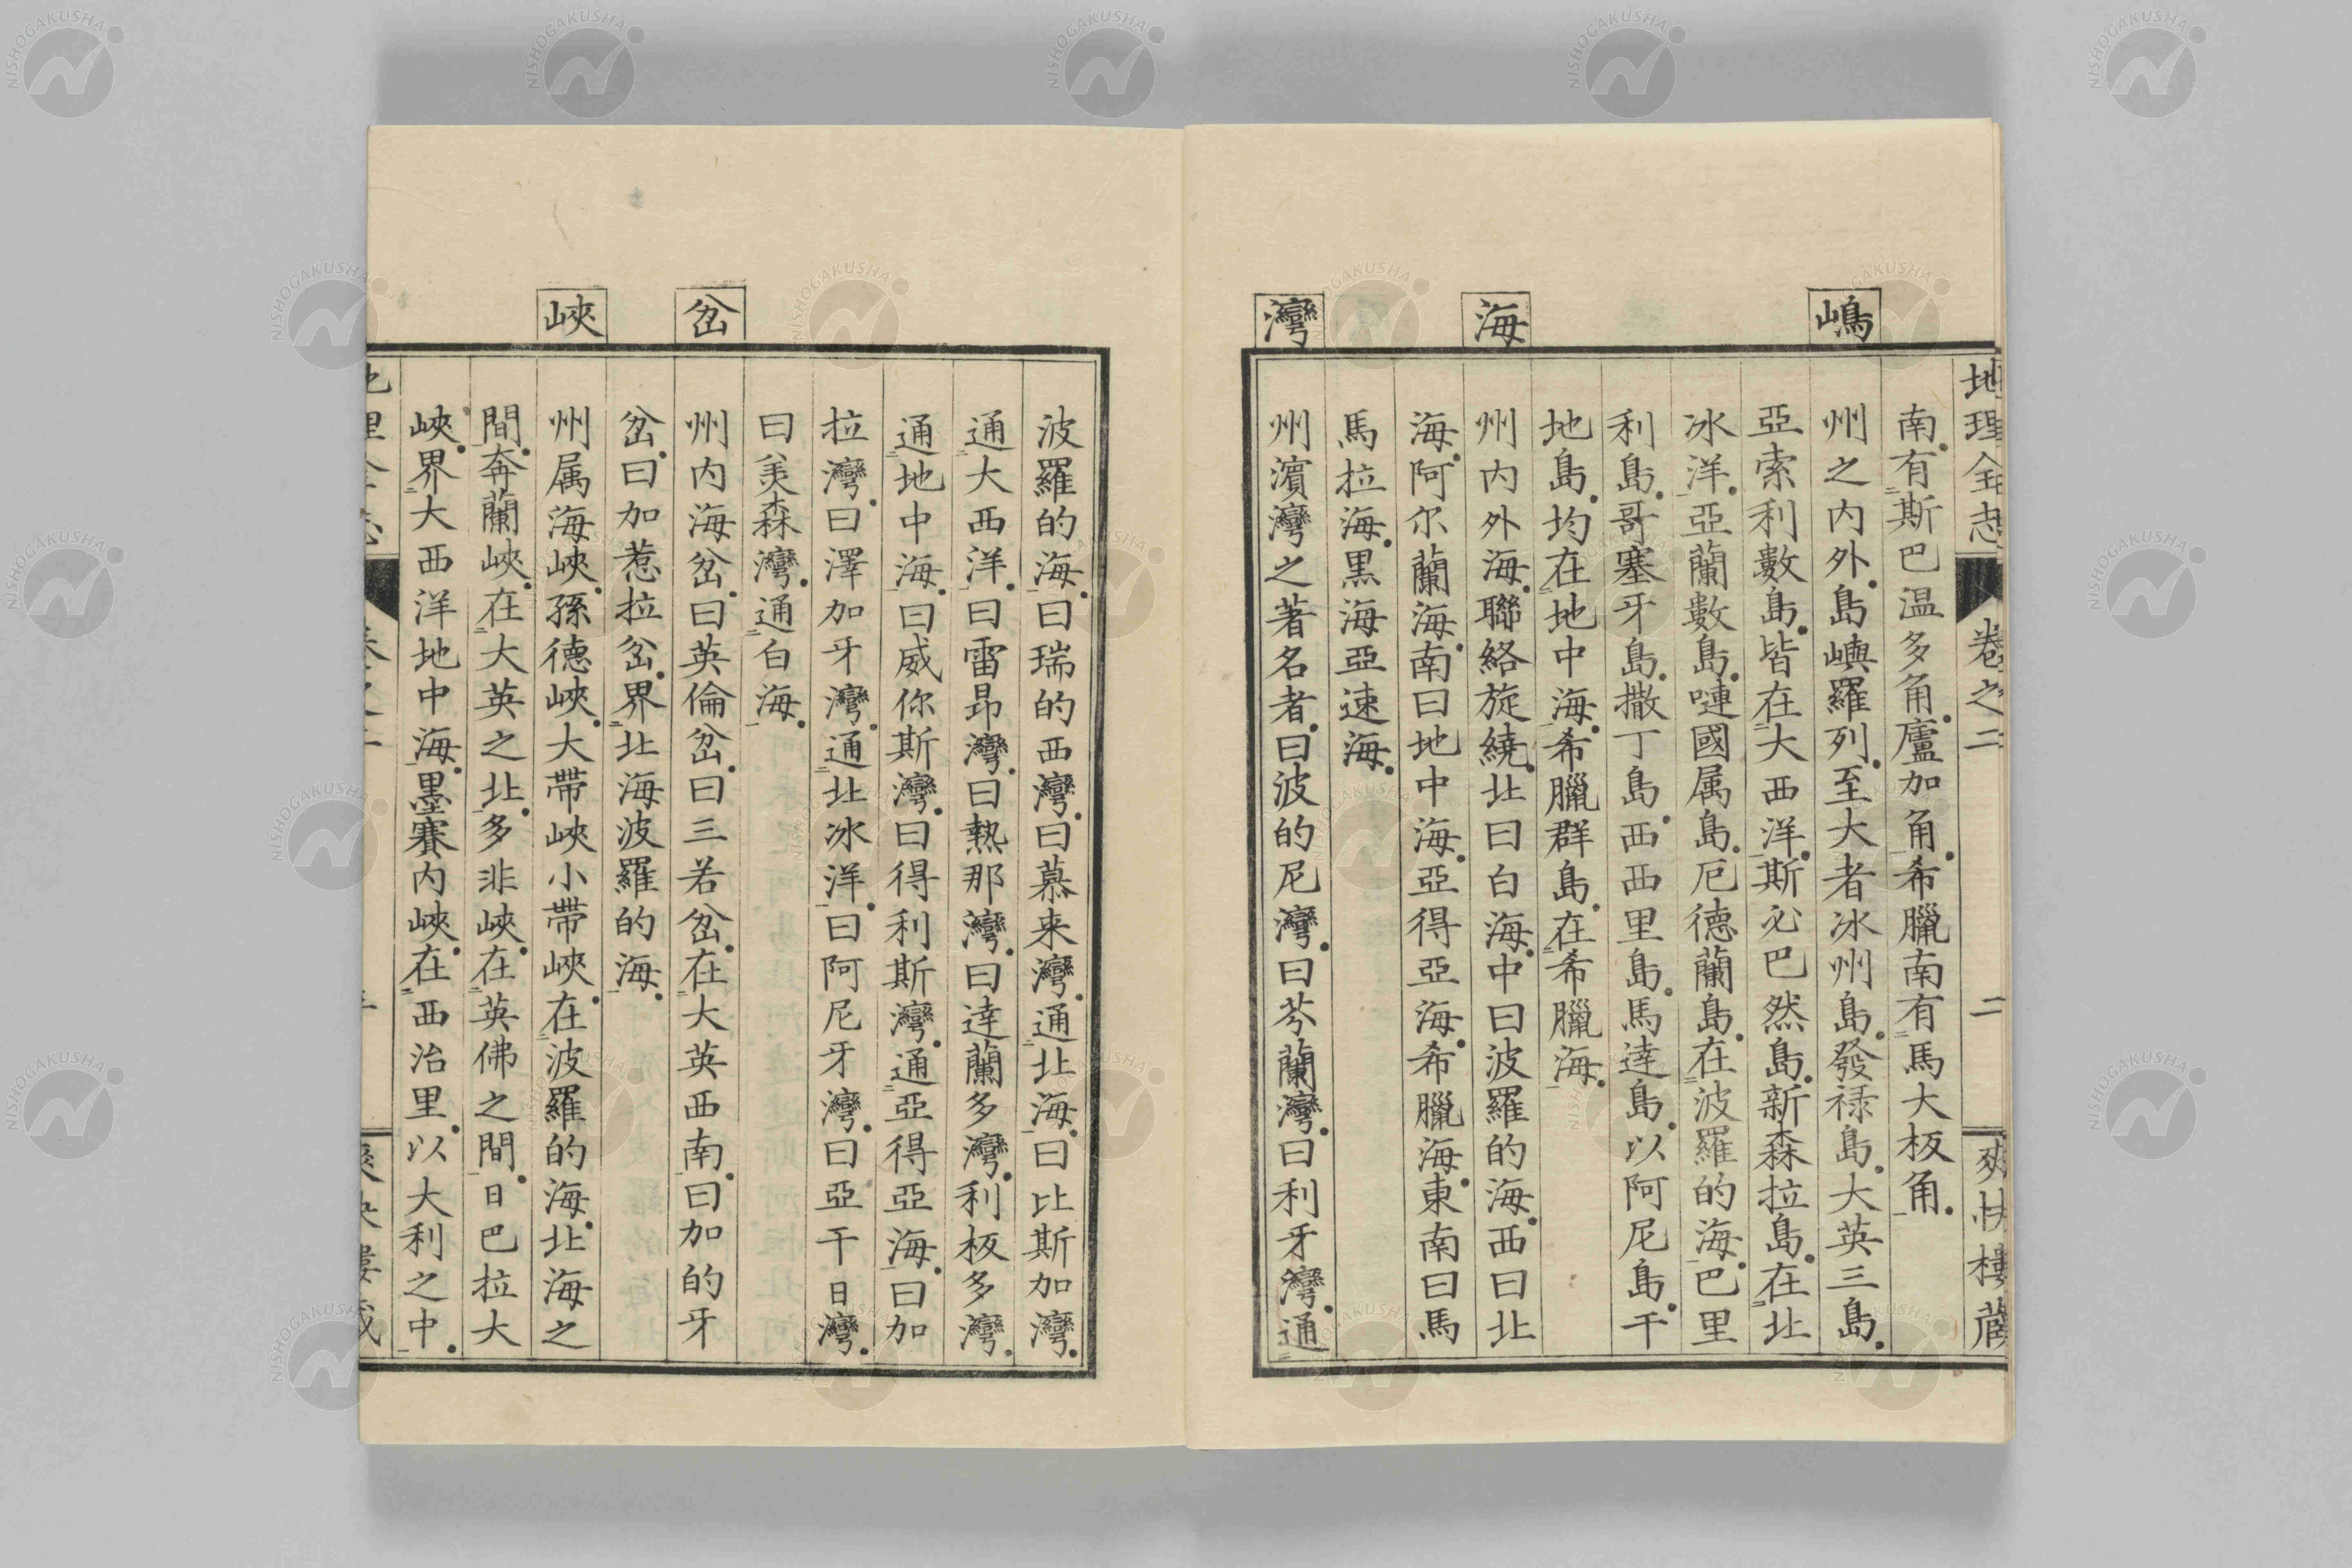 地理全志 卷之二 二 爽快樓藏
南有斯巴温多角廬加角希臘南有馬大板角
嶋
州之内外島嶼羅列至大者冰州島發禄島大英三島
亞索利數島皆在大西洋斯必巴然島新森拉島在北
冰洋亞蘭數島嗹國属島厄德蘭島在波羅的海巴里
利島哥塞牙島撒丁島西西里島馬達島以阿尼島干
地島均在地中海希臘群島在希臘海
海
州内外海聯絡旋繞北曰白海中曰波羅的海西曰北
海阿尔蘭海南曰地中海亞得亞海希臘海東南曰馬
馬拉海黒海亞速海
灣
州濵灣之著名者曰波的尼灣曰芬蘭灣曰利牙灣通
波羅的海曰瑞的西灣曰慕来灣通北海曰比斯加灣
通大西洋曰雷昂灣曰熱那灣曰達蘭多灣利板多灣
通地中海曰威你斯灣曰得利斯灣通亞得亞海曰加
拉灣曰澤加牙灣通北冰洋曰阿尼牙灣曰亞干日灣
曰美森灣通白海
岔
州内海岔曰英倫岔曰三若岔在大英西南曰加的牙
岔曰加惹拉岔界北海波羅的海
峽
州属海峽孫德峽大帶峽小帶峽在波羅的海北海之
間奔蘭峽在大英之北多非峽在英佛之間日巴拉大
峽界大西洋地中海墨賽内峽在西治里以大利之中